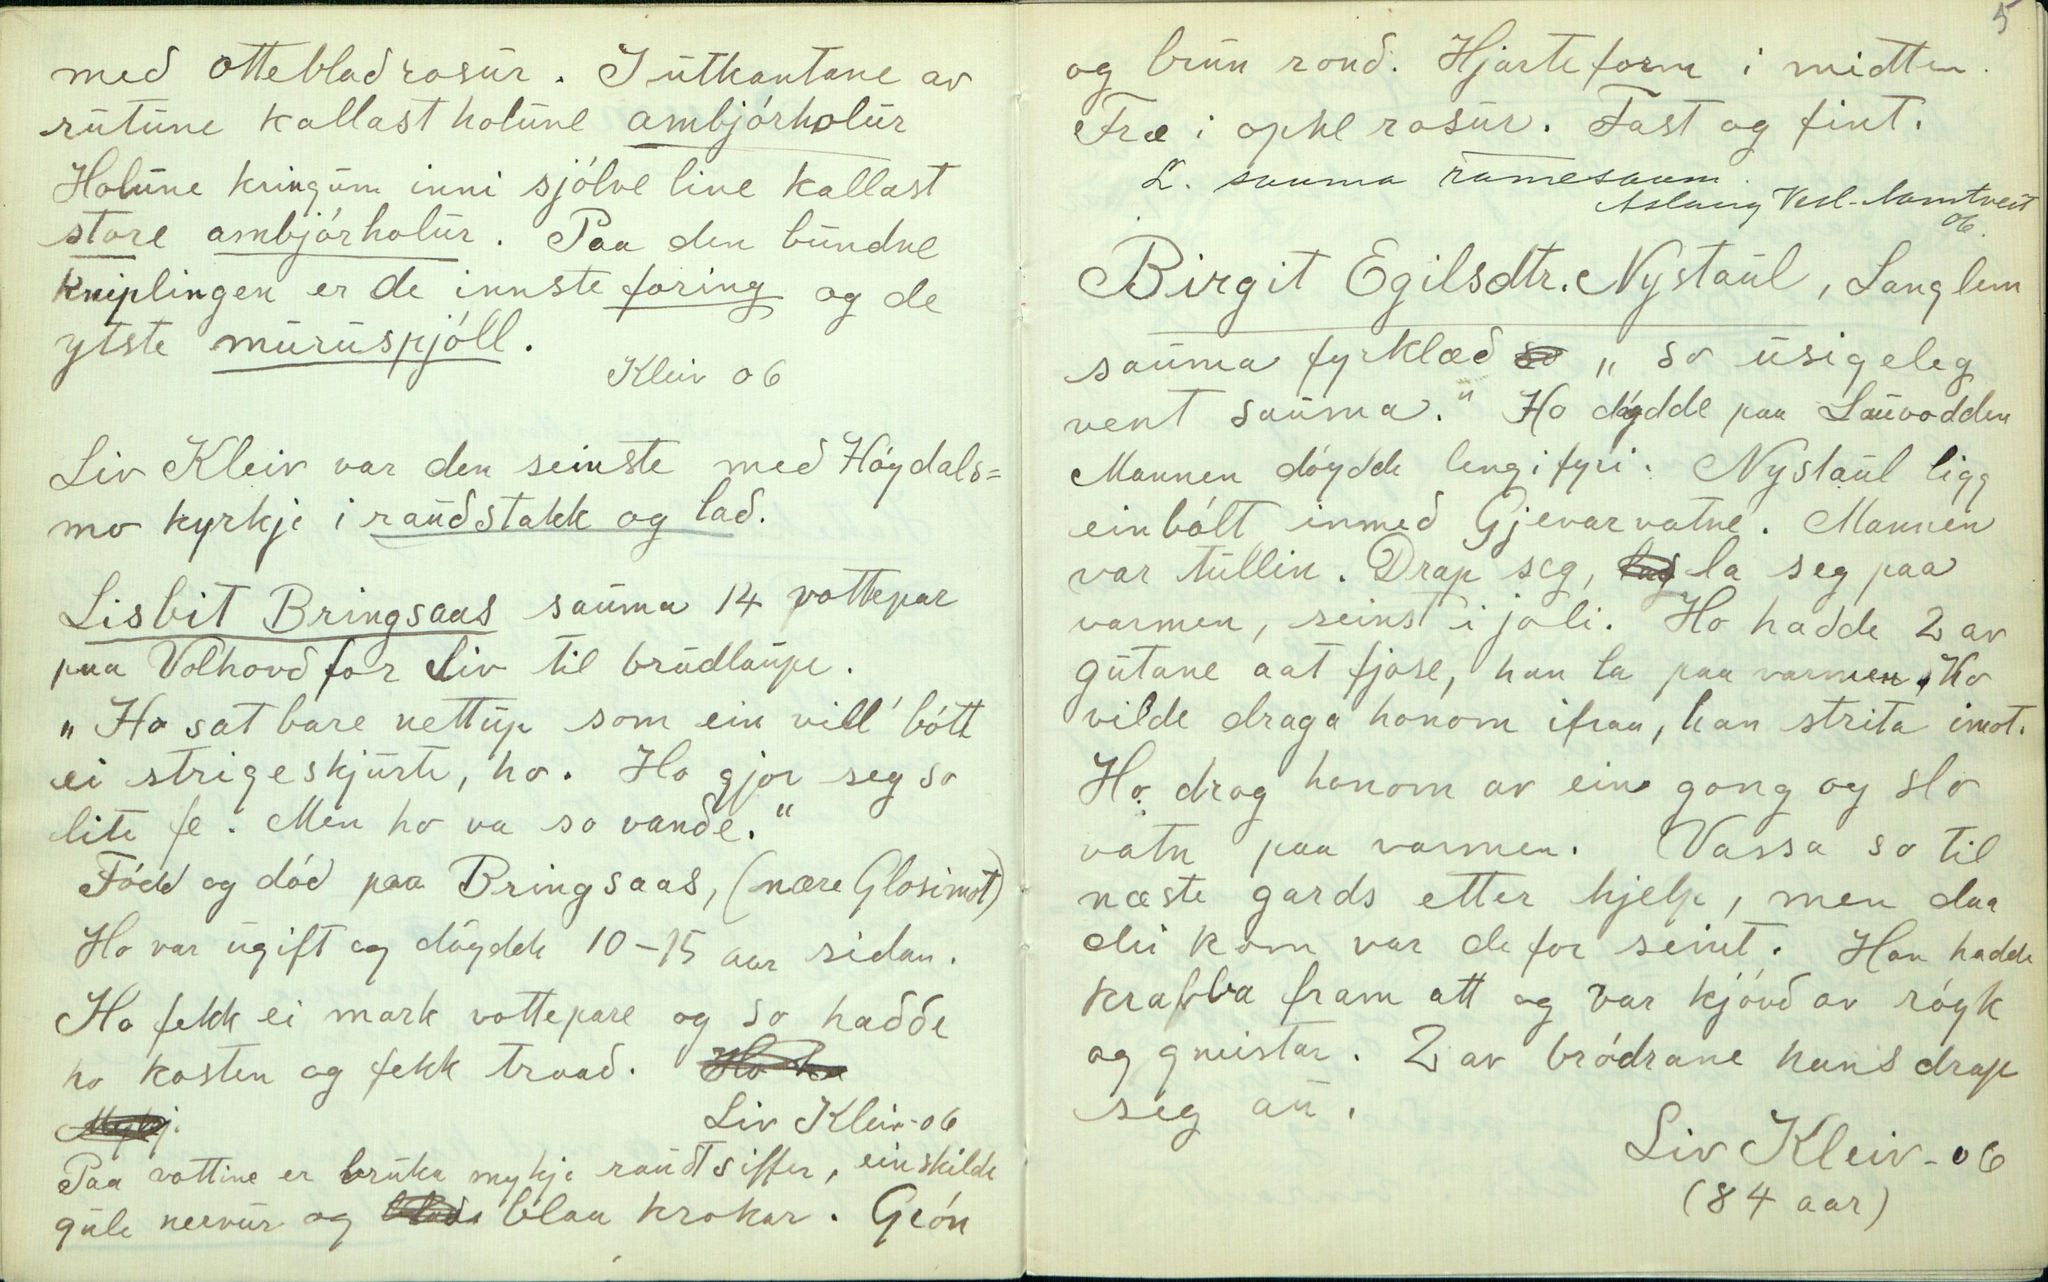 med ottebladrosur. I utkantane av
rutune kallast holune ambjórholur
Holune kringum inni sjólve line kallast
store ambjórholur. Paa den bundne
kniplingen er de innste foring og de
ytste muruspjóll.
Kleiv 06
Liv Kleiv var den seinste med Høydals=
mo kyrkje i raudstakk og lad.
Lisbit Bringsaas sauma 14 vottepar
paa Volhovd for Liv til brudlaupe.
„Ho sat bare nettup som ein vill' bótt
ei strigeskjurte, ho. Ho gjor seg so
lite fe. Men ho va so vande."
Fódd og dód paa Bringsaas, (nære Glosimot)
Ho var ugift og dóydde 10-15 aar sidan.
Ho fekk ei mark vottepare og so hadde
ho kosten og fekk traad.
Liv Kleiv-06
Paa vottine er bruka mykje raudt siffer, einskilde
gule nervur og blaa krokar. Grón
5
og brun rond. Hjarteform i midten.
Fræ i ophl rosur. Fast og fint.
L. sauma ramesaum.
Aslaug Vesl-Mamtveit
06.
Birgit Egilsdtr. Nystaul, Langlem
sauma fyrklæd „so usigeleg
vent sauma." Ho dóydde paa Lauvodden
Mannen dóydde lengi fyri. Nystaul ligg
einbólt inmed Gjevarvatne. Mannen
var tullin. Drap seg, la seg paa
varmen, seinst i joli. Ho hadde 2 av
gutane aat fjose, han la paa varmen, Ho
vilde draga honom ifraa, han strita imot.
Ho drog honom av ein gong og slo
vatn paa varmen. Vassa so til
næste gards etter hjelp, men daa
dei kom var de for seint. Han hadde
krabba fram att og var kjóvd av róyk
og gneistar. 2 av bródrane hans drap
seg au.
Liv Kleiv-06
(84 aar)